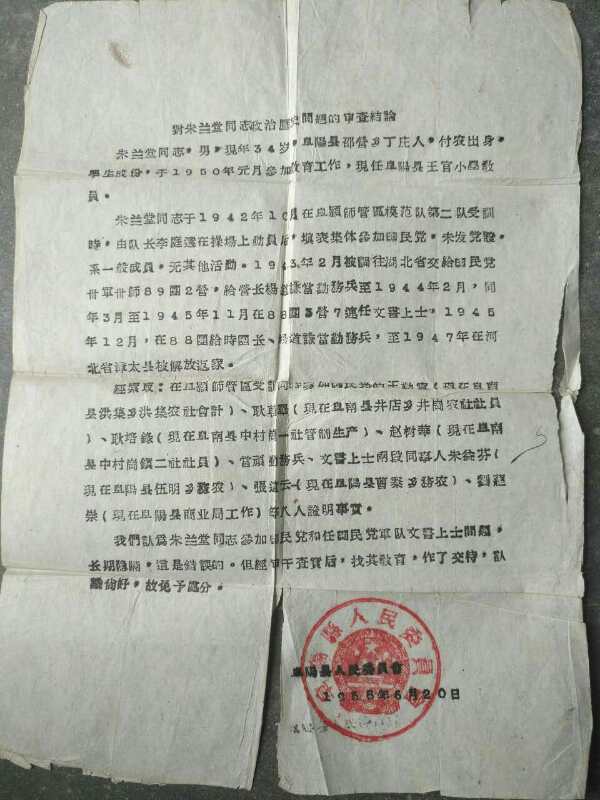 對朱兰堂同志政治历史問題的审查結論
朱兰堂同志，男，現年34岁，阜陽县邵营乡丁庄人，付农出身，
學生成份，于1950年元月参加教育工作，現任阜陽县王官小學教
員。
朱兰堂同志于1942年10月在阜潁師管區模范队第二队受訓
時，由队长李庭 在操場上動員后，填表集体参加囯民党，未发党証，
系一般成員，无其他活動。1943年2月被調往湖北省交給囯民党
卅軍卅師89團2營，給营长楊 謙當勤務兵至1944年2月，同
年3月至1945年11月在88團3营7連任文書上士，1945
年12月，在88團給時團长、楊道謙當勤務兵，至1947年在河
北省 太县被解放返家。
經 ：在阜潁師管區受訓同 参加囯民党的王勤 （現在阜南
县洪集乡洪集农社会計）、耿 （現在阜南县井店乡井崗农社社員
）、耿培錄（現在阜南县中村崗一社管制生产）、赵树華（現在阜南
县中村崗鎮二社社員）、當頭勤務兵、文書上士兩段同事人朱 芬（
現在阜陽县伍明乡務农）、張 云（現在阜陽县曹集乡務农）、劉
崇（現在阜陽县商业局工作）等八人証明事實。
我們認爲朱兰堂同志参加囯民党和任囯民党軍队文書上士問題，
长期隐瞞，這是錯誤的。但經审干查實后，找其教育，作了交待，認
識尙好，故免予處分。
阜陽县人民委員會
1956年6月20日
縣人民委員會